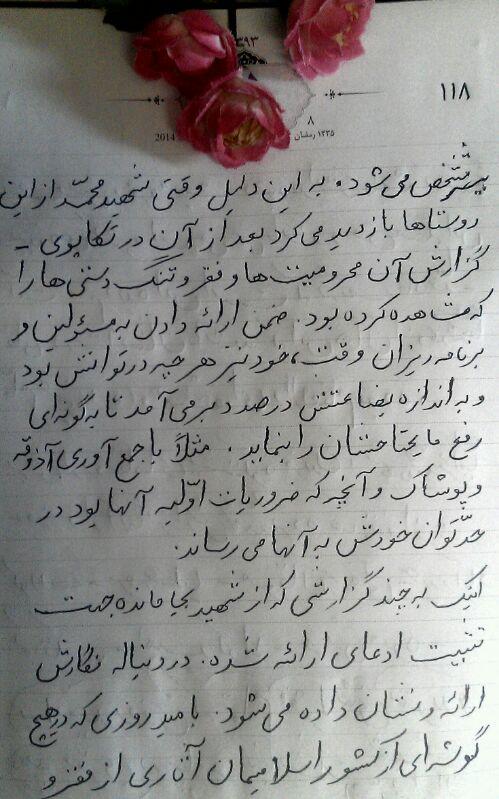 ۱۳۹۳
۱۱۸
۸
2014
۱۴۳۵ رمضان
بیشتر مشخص می‌شود. به این دلیل وقتی شهید محمد از این
روستاها بازدید می‌کرد بعد از آن در تکاپوی -
گزارش آن محرومیت‌ها و فقر و تنگ دستی‌ها را
که مشاهده کرده بود. ضمن ارائه دادن به مسئولین و
برنامه ریزان وقت، خود نیز هر چه در توانش بود
و به اندازه بضاعتش درصدد برمی‌آمد تا به گونه‌ای
رفع مایحتاجشان را بنماید. مثلاً با جمع آوری آذوقه
و پوشاک و آنچه که ضروریات اوّلیه آنها بود در
حدّ توان خودش به آنها می‌رساند.
اینک به چند گزارشی که از شهید بجا مانده جهت
تثبیت ادعای ارائه شده. در دنباله نگارش
ارائه و نشان داده می‌شود. بامید روزی که در هیچ
گوشه‌ای از کشور اسلامیمان آثاری از فقر و